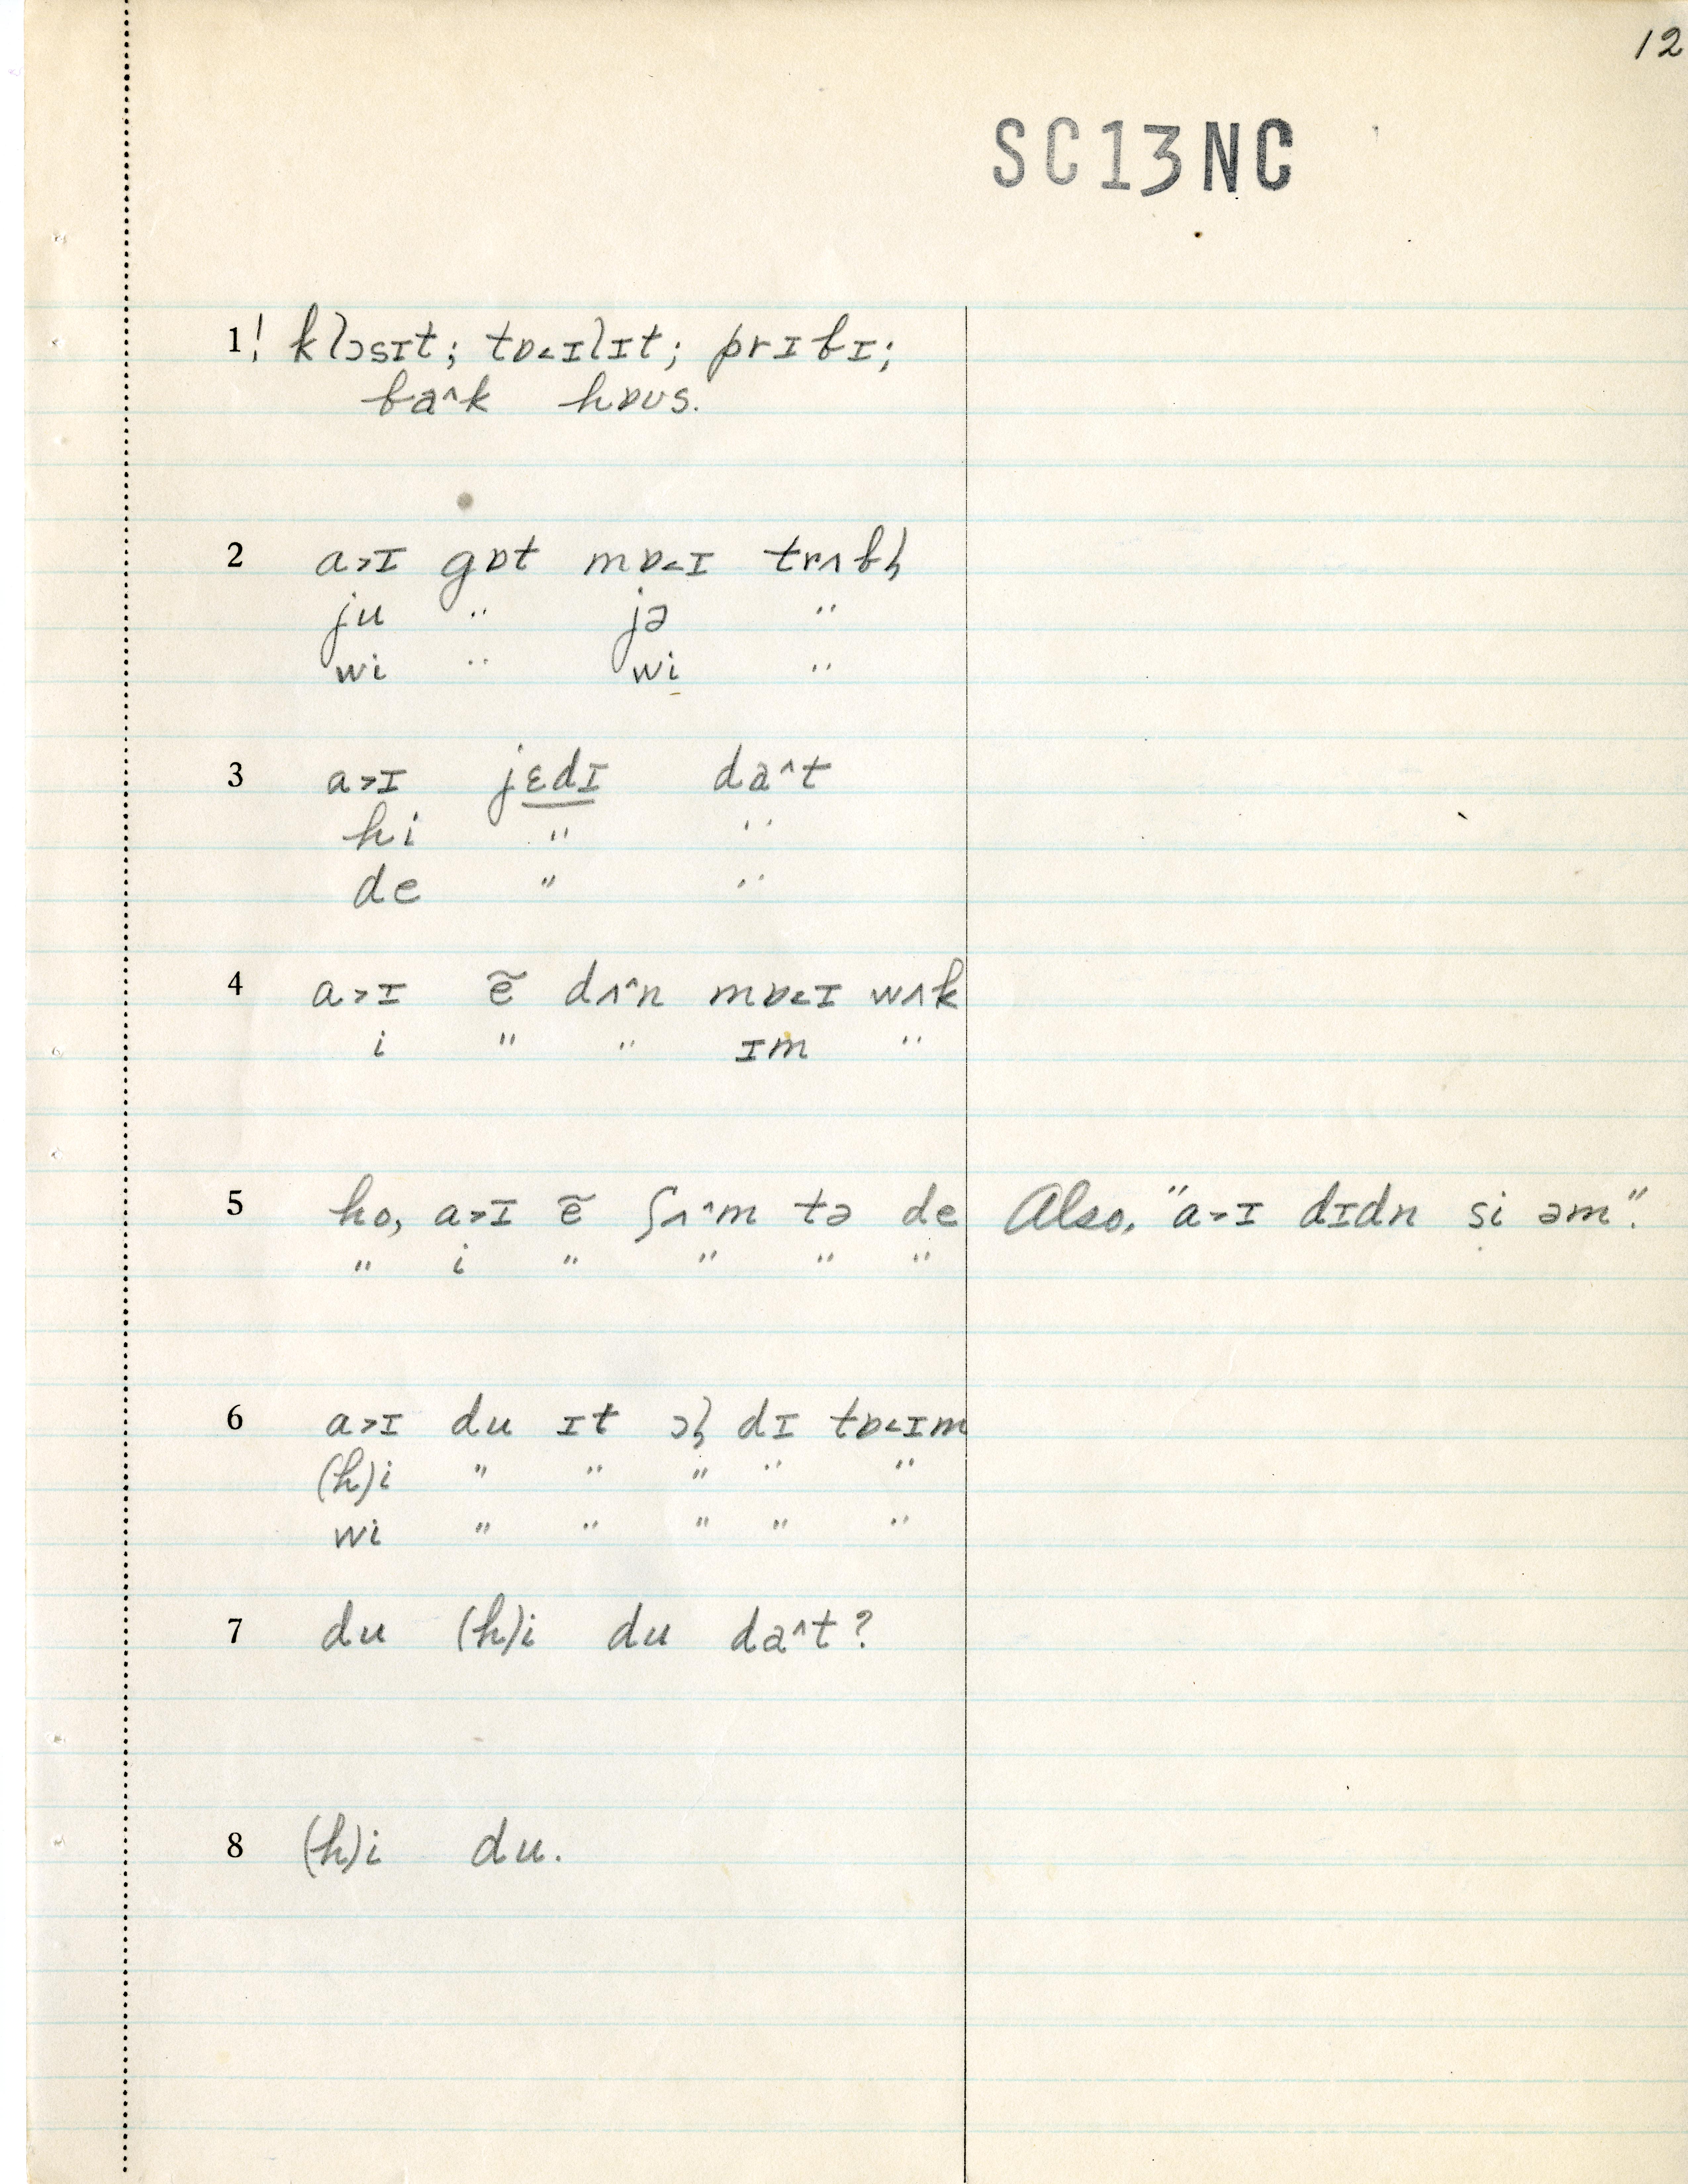 12
SC13NC
1! klɔsɪt; tɒ˂ɪlɪt; prɪbɪ;
ba^k hɒʊs.
2 a˃ɪ gɒt mɒ˂ɪ trʌbl̩
ju " jə "
wi " wi "
3 a˃ɪ jɛdɪ da^t
hi " "
de " "
4 a˃ɪ ẽ dʌ^n mɒ˂ɪ wʌk
i " " ɪm "
5 ho, a˃ɪ ẽ ʃʌ^m tə de Also, "a˃ɪ dɪdn si əm".
" i " " " "
6 a˃ɪ du ɪt ɔl̩ dɪ tɒ˂ɪm
(h)i " " " " "
wi " " " " "
7 du (h)i du da^t?
8 (h)i du.